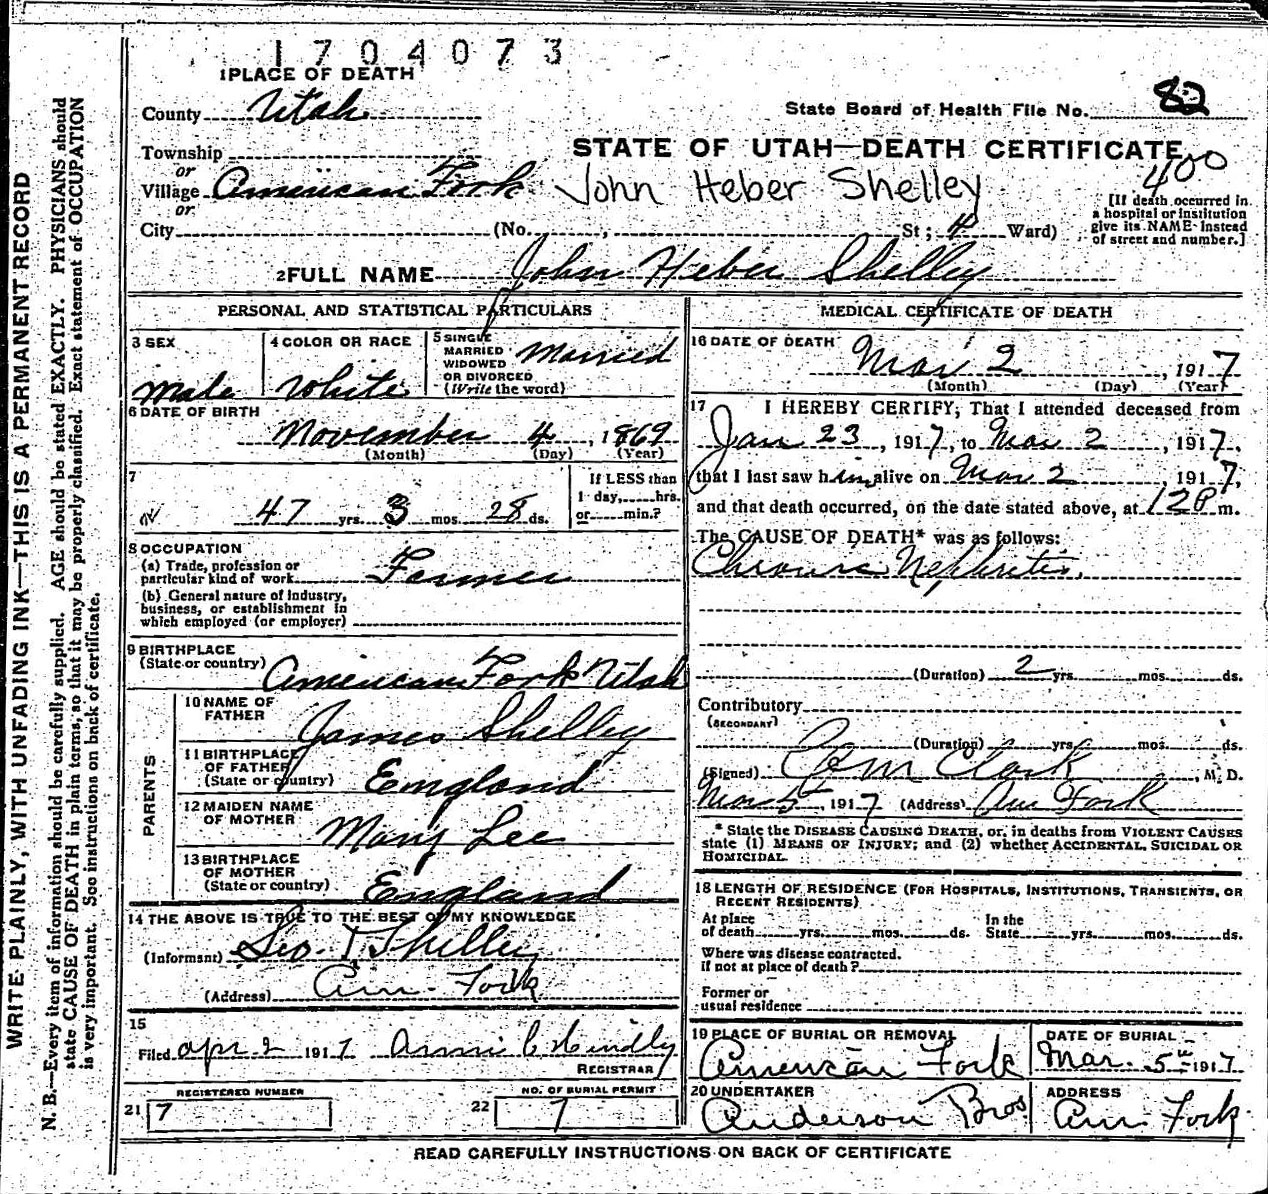 1704073
1 PLACE OF DEATH
County Utah
State Board of Health File No. 82
Township
or
Village American Fork
or
City (No. , St; 4 Ward)
STATE OF UTAH—DEATH CERTIFICATE
400
John Heber Shelley
[If death occurred in
a hospital or institution
give its NAME instead
of street and number.]
2 FULL NAME John Heber Shelley
PERSONAL AND STATISTICAL PARTICULARS
3 SEX
Male
4 COLOR OR RACE
White
5 SINGLE
MARRIED
WIDOWED
OR DIVORCED
(Write the word)
Married
6 DATE OF BIRTH
November 4, 1869
(Month) (Day) (Year)
7
47 yrs. 3 mos. 28 ds.
If LESS than
1 day,......hrs.
or......min.?
8 OCCUPATION
(a) Trade, profession or
particular kind of work Farmer
(b) General nature of industry,
business, or establishment in
which employed (or employer)
9 BIRTHPLACE
(State or country) American Fork Utah
PARENTS
10 NAME OF
FATHER
James Shelley
11 BIRTHPLACE
OF FATHER
(State or country)
England
12 MAIDEN NAME
OF MOTHER
Mary Lee
13 BIRTHPLACE
OF MOTHER
(State or country)
England
14 THE ABOVE IS TRUE TO THE BEST OF MY KNOWLEDGE
(Informant) Geo. T. Shelley
(Address) Am. Fork
15
Filed Apr 2 1917
REGISTRAR
REGISTERED NUMBER
21 7
NO. OF BURIAL PERMIT
22 7
MEDICAL CERTIFICATE OF DEATH
16 DATE OF DEATH
Mar 2, 1917
(Month) (Day) (Year)
17 I HEREBY CERTIFY, That I attended deceased from
Jan 23, 1917, to Mar 2, 1917,
that I last saw him alive on Mar 2 1917,
and that death occurred, on the date stated above, at m.
The CAUSE OF DEATH* was as follows:
Chronic Nephritis.
(Duration) 2 yrs. mos. ds.
Contributory
(SECONDARY)
(Duration) yrs. mos. ds.
(Signed) Clark, M. D.
Mar 5, 1917 (Address) Am Fork
* State the DISEASE CAUSING DEATH, or, in deaths from VIOLENT CAUSES
state (1) MEANS OF INJURY; and (2) whether ACCIDENTAL, SUICIDAL OR
HOMICIDAL.
18 LENGTH OF RESIDENCE (FOR HOSPITALS, INSTITUTIONS, TRANSIENTS, OR
RECENT RESIDENTS)
At place
of death yrs. mos. ds.
In the
State yrs. mos. ds.
Where was disease contracted.
if not at place of death?
Former or
usual residence
19 PLACE OF BURIAL OR REMOVAL
American Fork
DATE OF BURIAL
Mar. 5 1917
20 UNDERTAKER
Anderson Bros
ADDRESS
Am Fork
READ CAREFULLY INSTRUCTIONS ON BACK OF CERTIFICATE
WRITE PLAINLY, WITH UNFADING INK—THIS IS A PERMANENT RECORD
N. B.—Every item of information should be carefully supplied. AGE should be stated EXACTLY. PHYSICIANS should
state CAUSE OF DEATH in plain terms, so that it may be properly classified. Exact statement of OCCUPATION
is very important. See instructions on back of certificate.